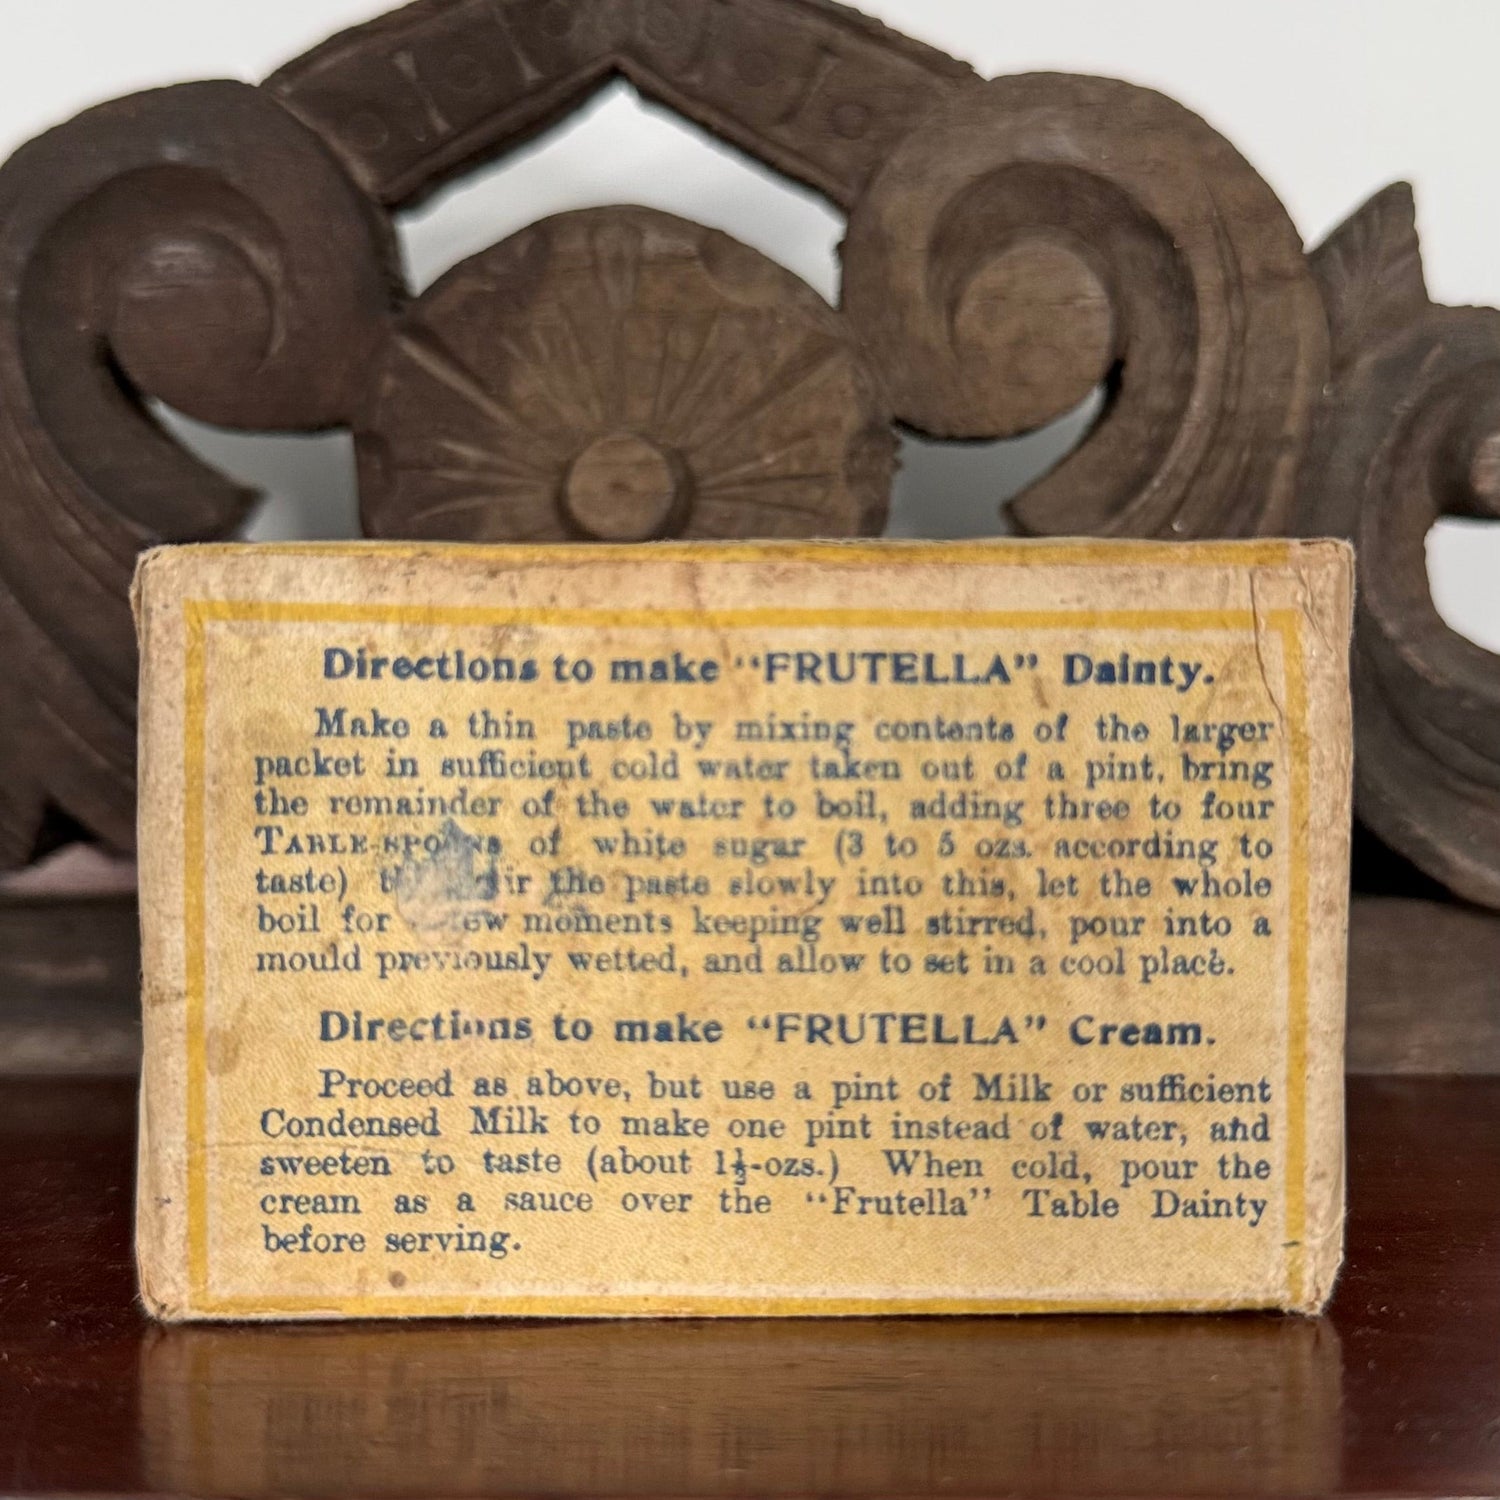 Directions to make "FRUTELLA" Dainty.
Make a thin paste by mixing contents of the larger
packet in sufficient cold water taken out of a pint, bring
the remainder of the water to boil, adding three to four
TABLE-SPOONS of white sugar (3 to 5 ozs. according to
taste) the paste slowly into this, let the whole
boil for few moments keeping well stirred, pour into a
mould previously wetted, and allow to set in a cool place.
Directions to make "FRUTELLA" Cream.
Proceed as above, but use a pint of Milk or sufficient
Condensed Milk to make one pint instead of water, and
sweeten to taste (about 1½-ozs.) When cold, pour the
cream as a sauce over the "Frutella" Table Dainty
before serving.